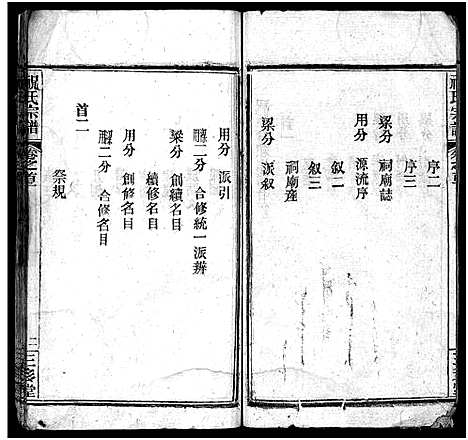 序二
序三
梁分 祠廟誌
用分 源流序
叙二
叙三
祠廟産
梁分 派叙
用分 派引
二分 合修統一派辨
梁分 創續名目
續修名目
用分 創修名目
二分 合修名目
首二
祭規
祝氏宗譜
二
三彩堂